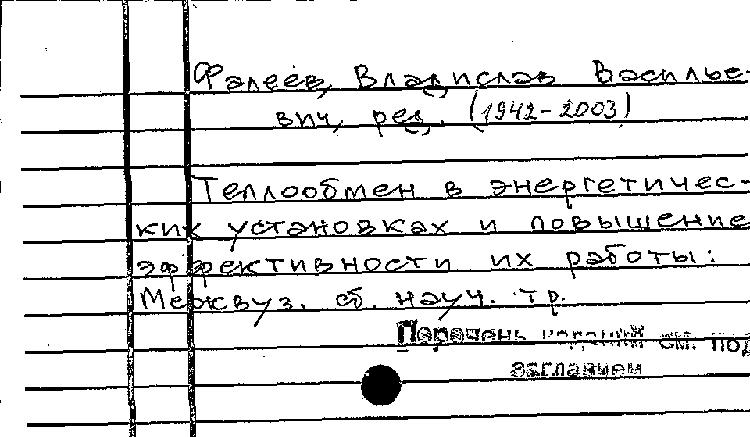 Фалеев, Владислав Василье-
вич, ред. (1942-2003)
Теплообмен в энергетичес-
ких установках и повышение
эффективности их работы:
Межвуз. сб. науч. тр.
Перечень изданий см. под
заглавием